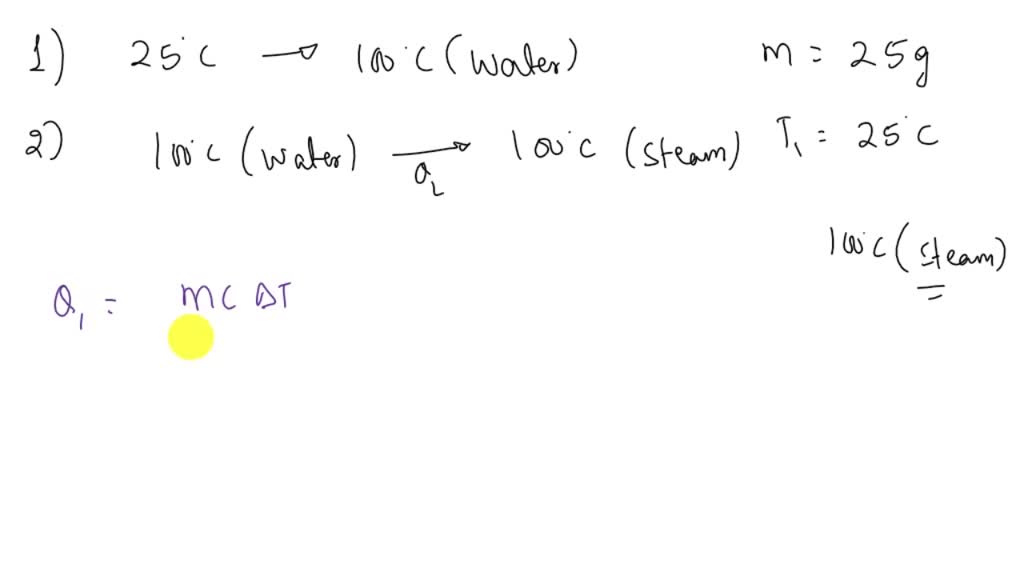 1) 25°C → 100°C (water) m = 25g
2) 100°C (water) → 100°C (steam) T₁ = 25°C
Q₂
100°C (steam)
Q₁ = mC ΔT